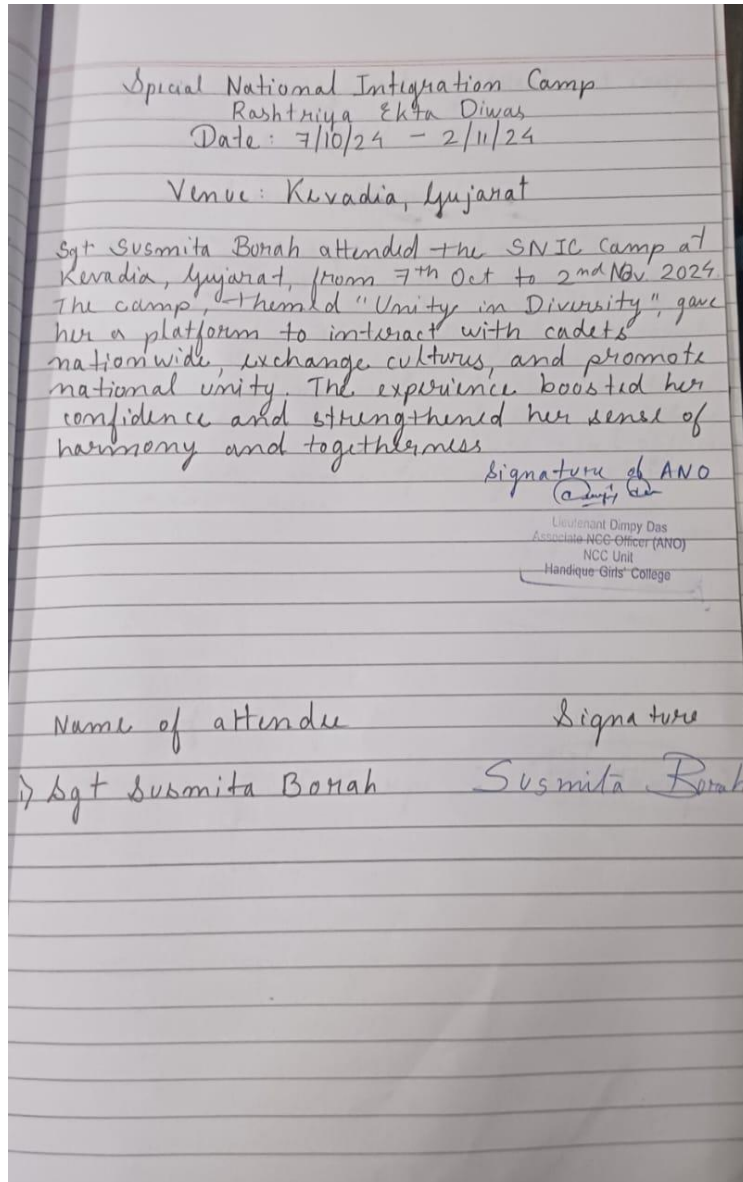 Special National Integration Camp
Rashtriya Ekta Diwas
Date: 7/10/24 - 2/11/24
Venue: Kevadia, Gujarat
Sgt Susmita Borah attended the SNIC Camp at
Kevadia, Gujarat, from 7th Oct to 2nd Nov 2024.
The camp, themed "Unity in Diversity", gave
her a platform to interact with cadets
nationwide, exchange cultures, and promote
national unity. The experience boosted her
confidence and strengthened her sense of
harmony and togetherness
Signature of ANO
Lieutenant Dimpy Das
Associate NCC Officer (ANO)
NCC Unit
Handique Girls' College
Name of attendee Signature
1) Sgt Susmita Borah Susmita Borah